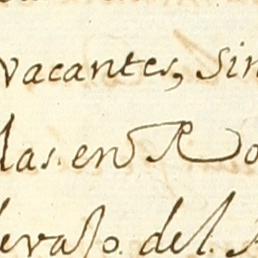 vacantes, sin
las en Ro
levaso. del.